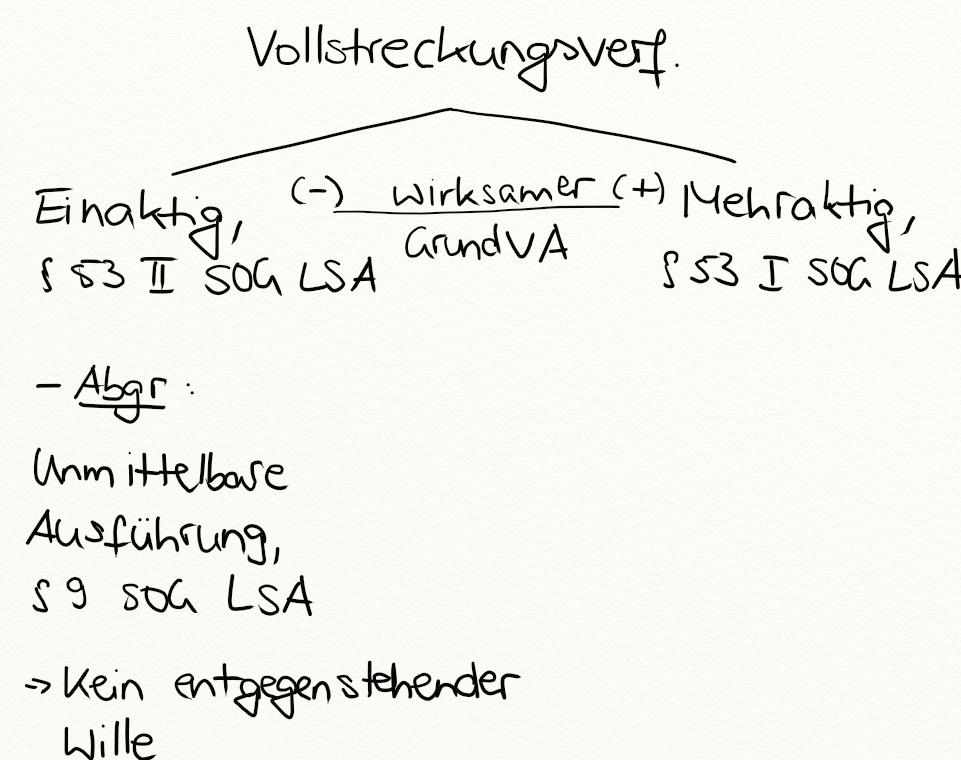 Vollstreckungsverf.
Einaktig, (-) wirksamer (+) Mehraktig,
GrundVA
§ 53 II SOG LSA § 53 I SOG LSA
- Abgr :
Unmittelbare
Ausführung,
§ 9 SOG LSA
-> Kein entgegenstehender
Wille